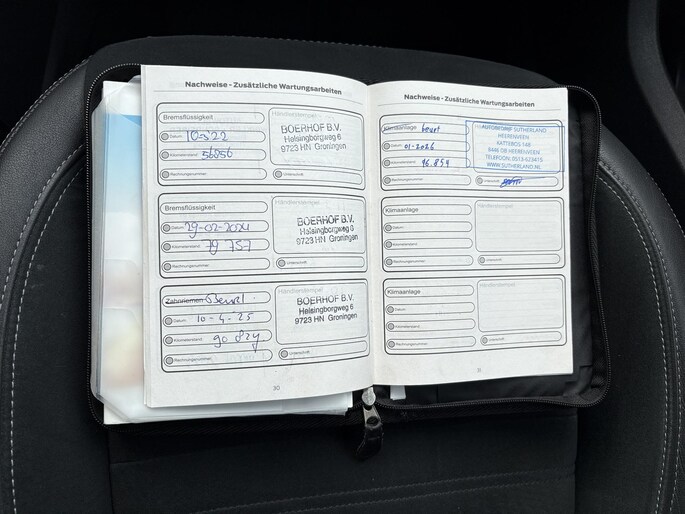 Nachweise - Zusätzliche Wartungsarbeiten
Bremsflüssigkeit
Händlerstempel
Datum 10-5-22
Kilometerstand 56856
Rechnungsnummer
Unterschrift
BOERHOF B.V.
Helsingborgweg 6
9723 HN Groningen
Bremsflüssigkeit
Händlerstempel
Datum 29-02-2024
Kilometerstand 79 757
Rechnungsnummer
Unterschrift
BOERHOF B.V.
Helsingborgweg 6
9723 HN Groningen
Zahnriemen Beurt
Händlerstempel
Datum 10-4-25
Kilometerstand 90 824
Rechnungsnummer
Unterschrift
BOERHOF B.V.
Helsingborgweg 6
9723 HN Groningen
30
Nachweise - Zusätzliche Wartungsarbeiten
Klimaanlage beurt
Datum 01-2026
Kilometerstand 96.854
Rechnungsnummer
Unterschrift
SUTHERLAND
HEERENVEEN
KATTEBOS 148
8446 DB HEERENVEEN
TELEFOON: 0513-623415
WWW.SUTHERLAND.NL
Klimaanlage
Händlerstempel
Datum
Kilometerstand
Rechnungsnummer
Unterschrift
Klimaanlage
Händlerstempel
Datum
Kilometerstand
Rechnungsnummer
Unterschrift